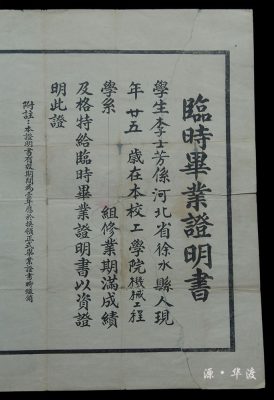 臨時畢業證明書
學生李士芳係河北省徐水縣人現
年廿五歲在本校工學院機械工程
學系　　組修業期滿成績
及格特給臨時畢業證明書以資證
明此證
附註：本證明書有效期間為壹年應於換領正式畢業證書時繳銷
源·华渡